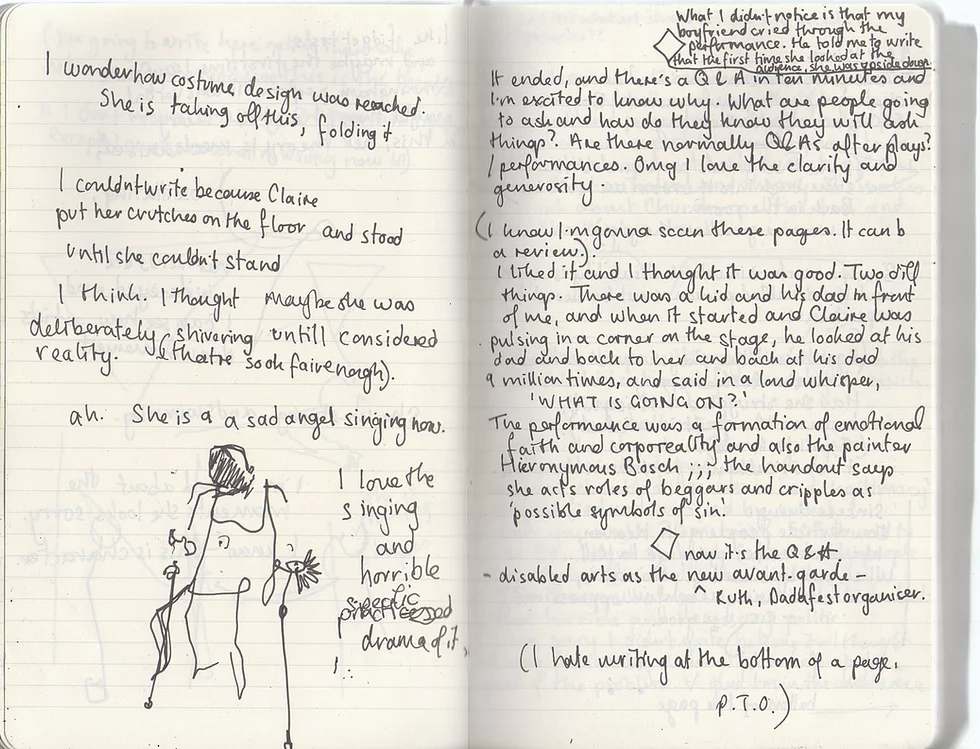 I wonder how costume design was reached.
She is taking off this, folding it
I couldn't write because Claire
put her crutches on the floor and stood
until she couldn't stand
I think. I thought maybe she was
deliberately shivering untill considered
reality. (theatre so oh fair enough).
ah. She is a a sad angel singing now.
I love the
singing
and
horrible
specific
drama of it,
What I didn't notice is that my
boyfriend cried through the
performance. He told me to write
that the first time she looked at the
audience, she was upside down.
It ended, and there's a Q & A in ten minutes and
I'm excited to know why. What are people going
to ask and how do they know they will ask
things? Are there normally Q&As after plays?
/performances. Omg I love the clarity and
generosity.
(I know I'm gonna scan these pages. It can b
a review.).
I liked it and I thought it was good. Two diff
things. There was a kid and his dad in front
of me, and when it started and Claire was
pulsing in a corner on the stage, he looked at his
dad and back to her and back at his dad
a million times, and said in a loud whisper,
'WHAT IS GOING ON?'
The performance was a formation of emotional
faith and corporeality and also the painter
Hieronymous Bosch ;;; the handout says
she acts roles of beggars and cripples as
'possible symbols of sin.'
now it's the Q&A.
- disabled arts as the new avant-garde -
^ Ruth, Dadafest organiser.
(I hate writing at the bottom of a page.
P.T.O.)